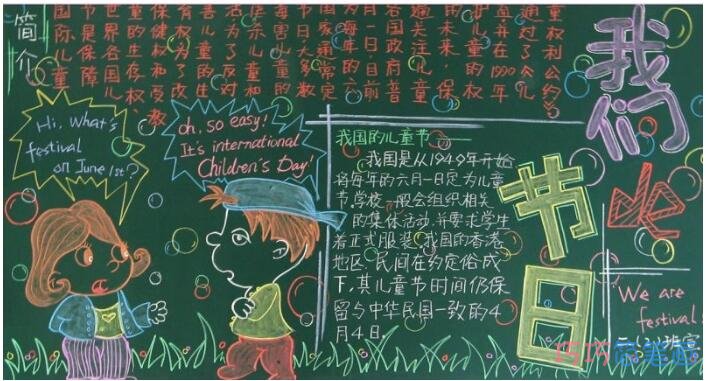 简介
国际儿童
节是保障
世界各国
童的生存权、
保健权和受教
育权为了改
善儿童的生
活为了反对
儿童和
毒害儿童的
节日大多数
国家通常定
为每年的六
月一日,目前
各国政府普
遍关注儿童
的未来,保
护儿童的权
益并在1990年
通过了《儿
童权利公约》
Hi, What's
festival
on June 1st?
oh, so easy!
It's international
Children's Day!
我国的儿童节
我国是从1949年开始
将每年的六月一日定为儿童
节.学校一般会组织相关
的集体活动,并要求学生
着正式服装.我国的香港
地区,民间在约定俗成
下,其儿童节时间仍保
留与中华民国一致的4
月4日.
我们
的
节日
We are
festival!